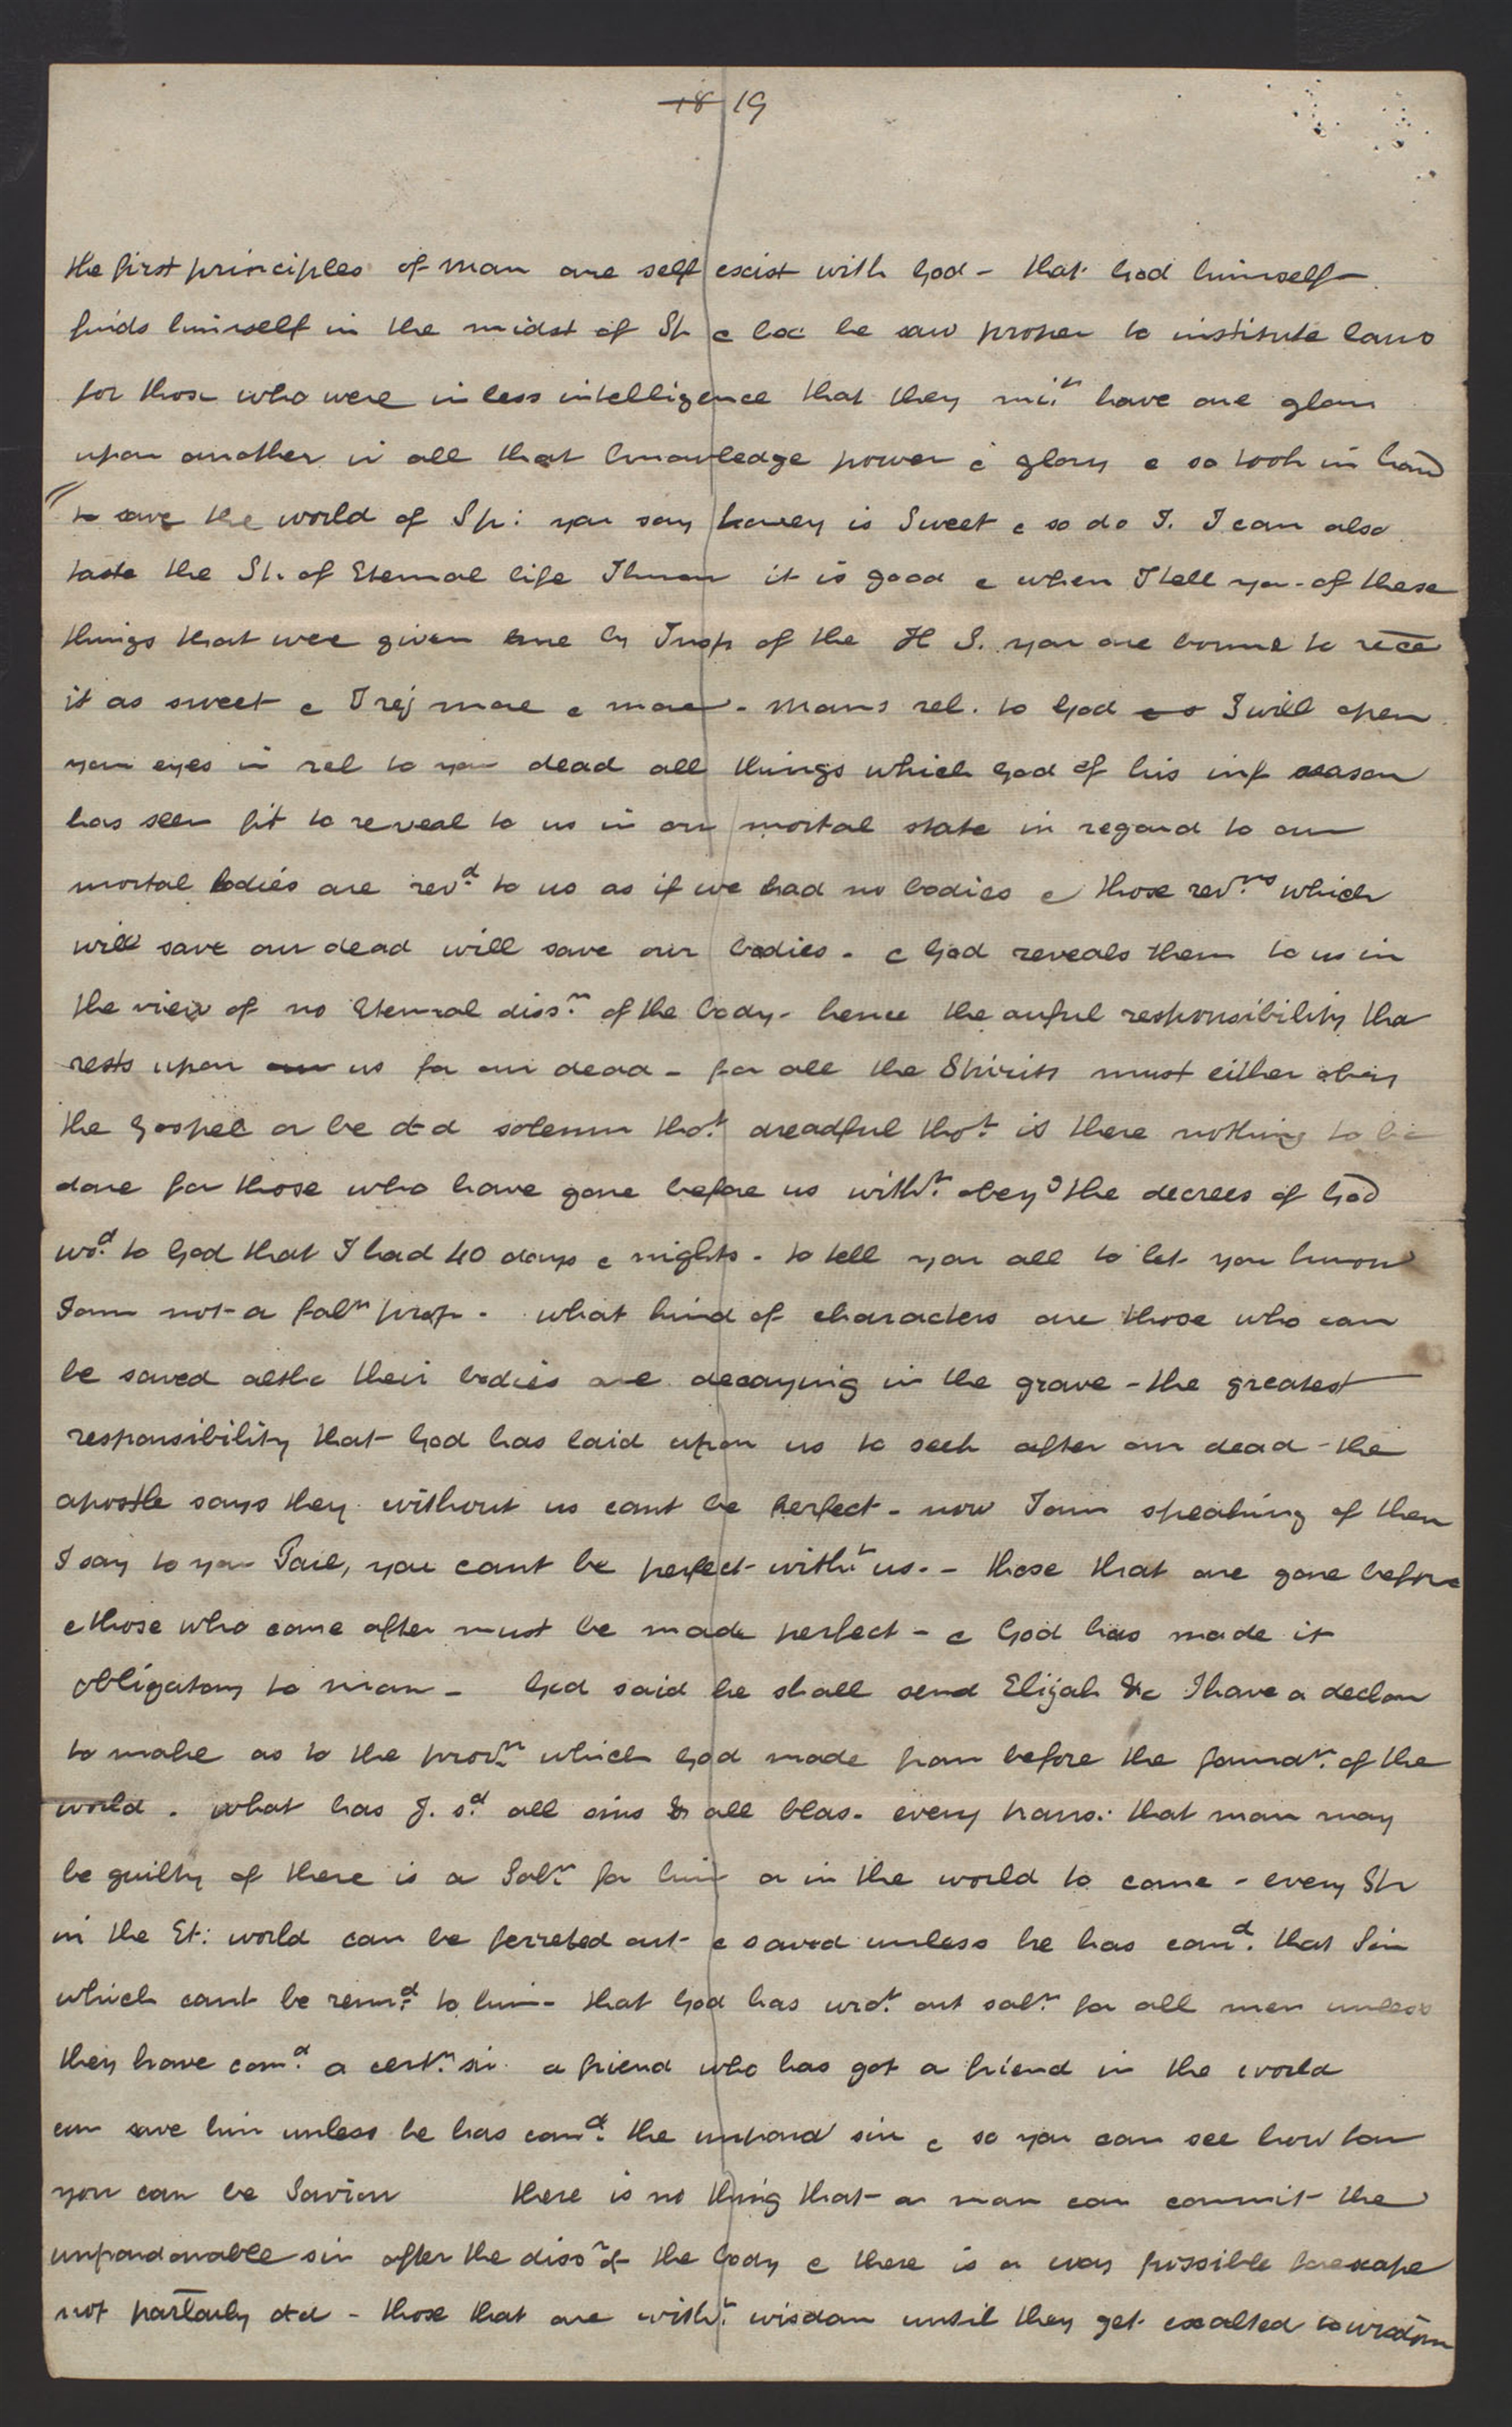 18 19
the first principles of man are self exist with God - that God himself
finds himself in the midst of Sp & bec he saw proper to institute laws
for those who were in less intelligence that they mit. have one glory
upon another in all that knowledge power & glory & so took in hand
to save the world of Sp: you say honey is Sweet & so do I. I can also
taste the Sp. of Eternal life I know it is good & when I tell you of these
things that were given me by Insp of the H S. you are bound to rece
it as sweet & I rej more & more. Mans rel. to God & I will open
your eyes in rel to your dead all things which God of his inf reason
has seen fit to reveal to us in our mortal state in regard to our
mortal bodies are revd. to us as if we had no bodies & those revns. which
will save our dead will save our bodies. & God reveals them to us in
the view of no Eternal dissn. of the body - hence the awful responsibility tha
rests upon our us for our dead - for all the Spirits must either obey
the Gospel or be d-d solemn thot. dreadful thot. is there nothing to be
done for those who have gone before us witht. obeyg the decrees of God
wod. to God that I had 40 days & nights - to tell you all to let you know
I am not a faln prop - what kind of characters are those who can
be saved altho their bodies are decaying in the grave - the greatest
responsibility that God has laid upon us to seek after our dead - the
apostle says they without us cant be perfect - now I am speaking of them
I say to you Paul, you cant be perfect witht us. - those that are gone before
& those who come after must be made perfect - & God has made it
obligatory to man - God said he shall send Elijah &c I have a declon
to make as to the provns. which God made from before the foundn. of the
world. what has J. sd. all sins & all blas. every trans: that man may
be guilty of there is a Saln. for him or in the world to come - every Sp
in the Et: world can be ferreted out & saved unless he has comd. that Sin
which cant be remd. to him - that God has wrot. out saln. for all men unless
they have comd. a certn. sin. a friend who has got a friend in the world
can save him unless he has comd. the unpard sin & so you can see how far
you can be Savior there is no thing that a man can commit the
unpardonable sin after the dissn of the body & there is a way possible for escape
not partarly d-d - those that are witht. wisdom until they get exalted to wisdom